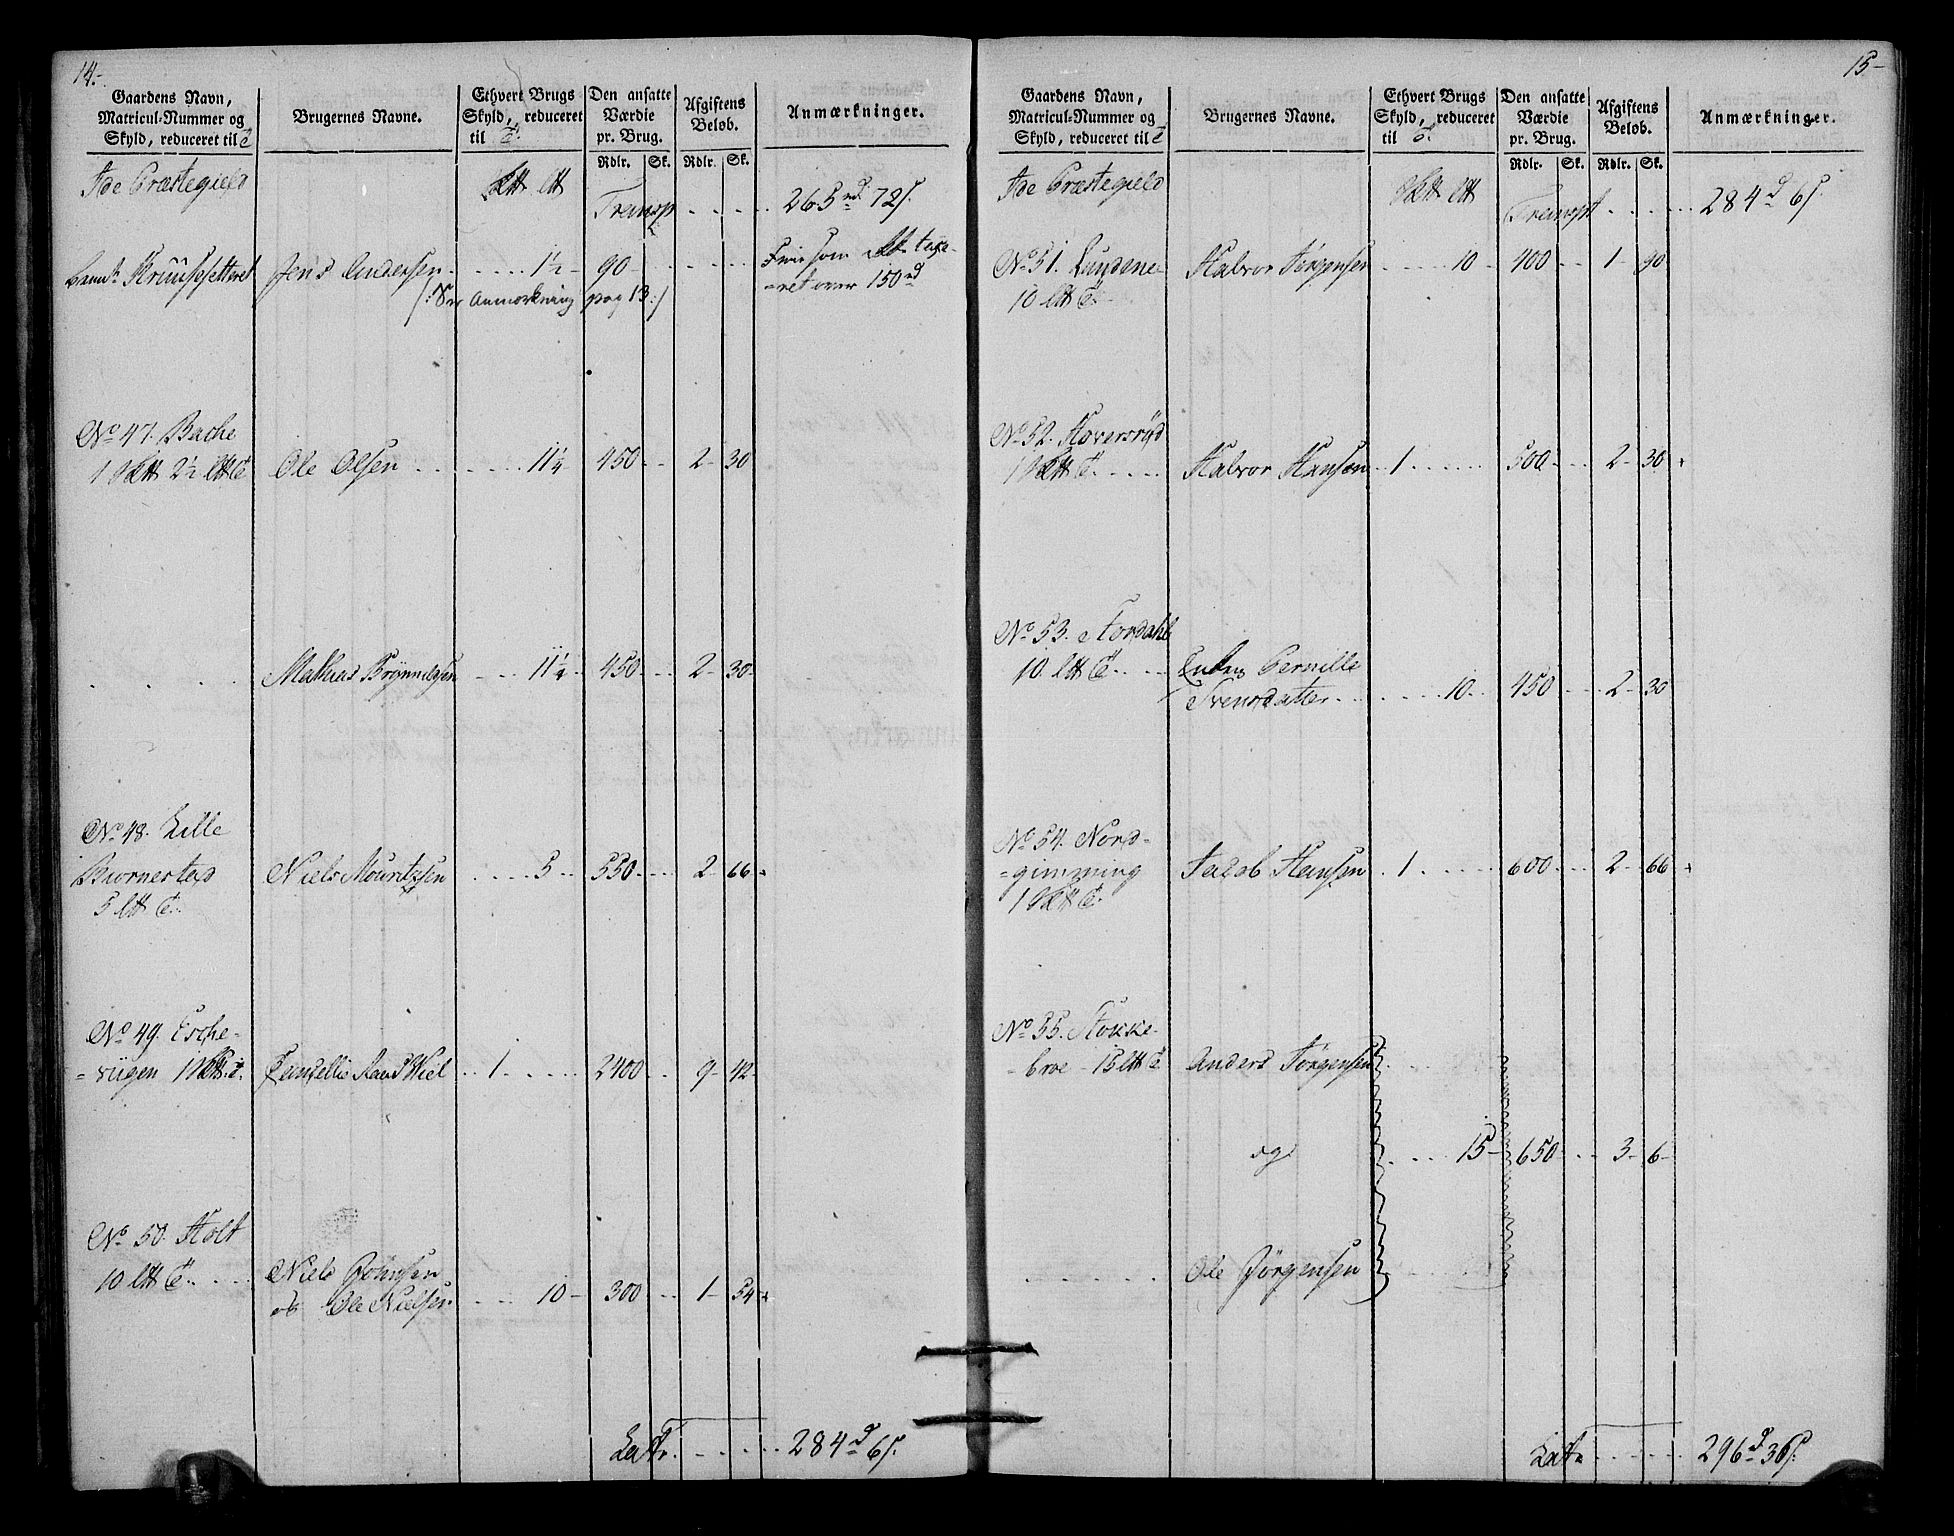 14.-
Gaardens Navn, Matricul-Nummer og Skyld, reduceret til
Brugernes Navne.
Ethvert Brugs Skyld, reduceret til
Den ansatte Værdie pr. Brug.
Afgiftens Beløb.
Anmærkninger.
Rdlr. Sk. Rdlr. Sk.
Ide Præstegield
Transp . . . . . 265 rd 72 s.
Jens Andersen . . . . . 1½ - 90 - . . . . .
(: See Anmærkning pag 13 :)
150 rd
No 47. Bache
1 2½ Ole Olsen . . . . . 11¼ - 450 . . 2 - 30
Mathias Brynnildsen . . . 11¼ - 450 . . 2 - 30 -
No 48. Lille
Biørnestad
5 Niels Mouritzsen . . . . 5 - 550 . . 2 - 66 -
No 49. Esche-
-vügen 1 Wiel . . 1 . . . . . 2400 . . 9 - 42
No 50. Holt
10 Niels Johnsen
og Ole Nielsen . . . 10 - 300 . . 1 - 54
Latr. . . . . . 284 d 6 s.
15-
Gaardens Navn, Matricul-Nummer og Skyld, reduceret til
Brugernes Navne.
Ethvert Brugs Skyld, reduceret til
Den ansatte Værdie pr. Brug.
Afgiftens Beløb.
Anmærkninger.
Rdlr. Sk. Rdlr. Sk.
Ide Præstegield
Transpt . . . . . 284 d 6 s.
No 51. Lundene
10 Halvor Jørgensen . . . . 10 - 400 . . 1 - 90
No 52. Hoversrød
1 Halvor Hansen . . 1 . . . . . 500 . . 2 - 30
No 53. Stordahl
10 Enken Pernille
Svensdatter . . . . . 10 - 450 . . 2 - 30
No 54. Nord-
-gimming
1 Jacob Hansen . . 1 . . . . . 600 . . 2 - 66
No 55. Stokke-
-broe - 15 Anders Jørgensen
og . . . . 15 - 650 . . 3 - 6 -
. . . . . Ole Jørgensen
Latr . . . . . 296 d 36 s.